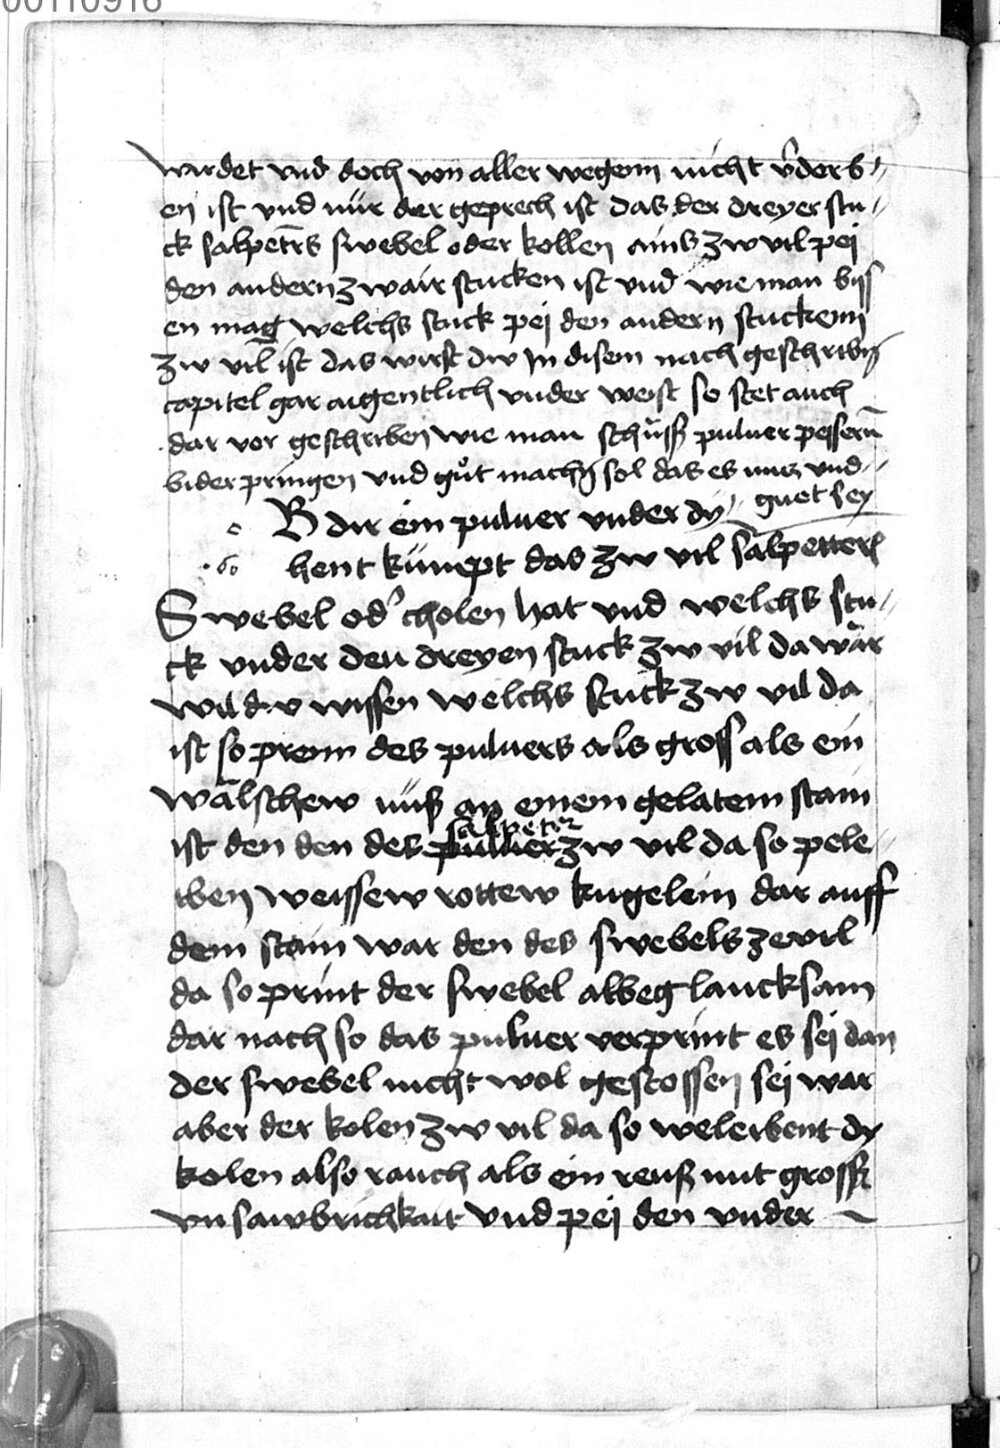 00110916
wirdet vnd doch von aller wegenn nicht v̄derb〃
en ist vnd nür der geprech ist das der dreyer stu〃
ck salpetr̄s swebel oder kollen ains zw vil pei
den andern zwair stucken ist vnd wie man biss
en mag welchs stuck pej den andern stuckenn
zw vil ist das wirst dw In disem nach geschribn̄
capitel gar aigentlich vnder weist so stet auch
dar vor geschriben wie man schüss puluer pessern̄
bider pringen vnd gůt machn̄ sol das es nucz vnd〃
guet sey
B dir ein puluer vnder dy〃
hent kümpt das zw vil salpetters
Swebel od' cholen hat vnd welchs stu〃
ck vnder den dreyen stuck zw vil da wär
wil dw wissen welchs stuck zw vil da
ist so prenn des puluers als gross als ein
wälschew nuß an einem gelatem stain
salpeter
ist den den des puluer zw vil da so pele〃
iben weissew rottew kugelein dar auff
dem stain war den des swebels ze vil
da so print der swebel albeg lancksam
dar nach so das puluer verprint es sei dan
der swebel nicht wol gestossen sej war
aber der kolen zw vil da so weleibent dy
kolen also rauch als ein reuß mit grosser
vnsawbrichkait vnd pej den vnder ~